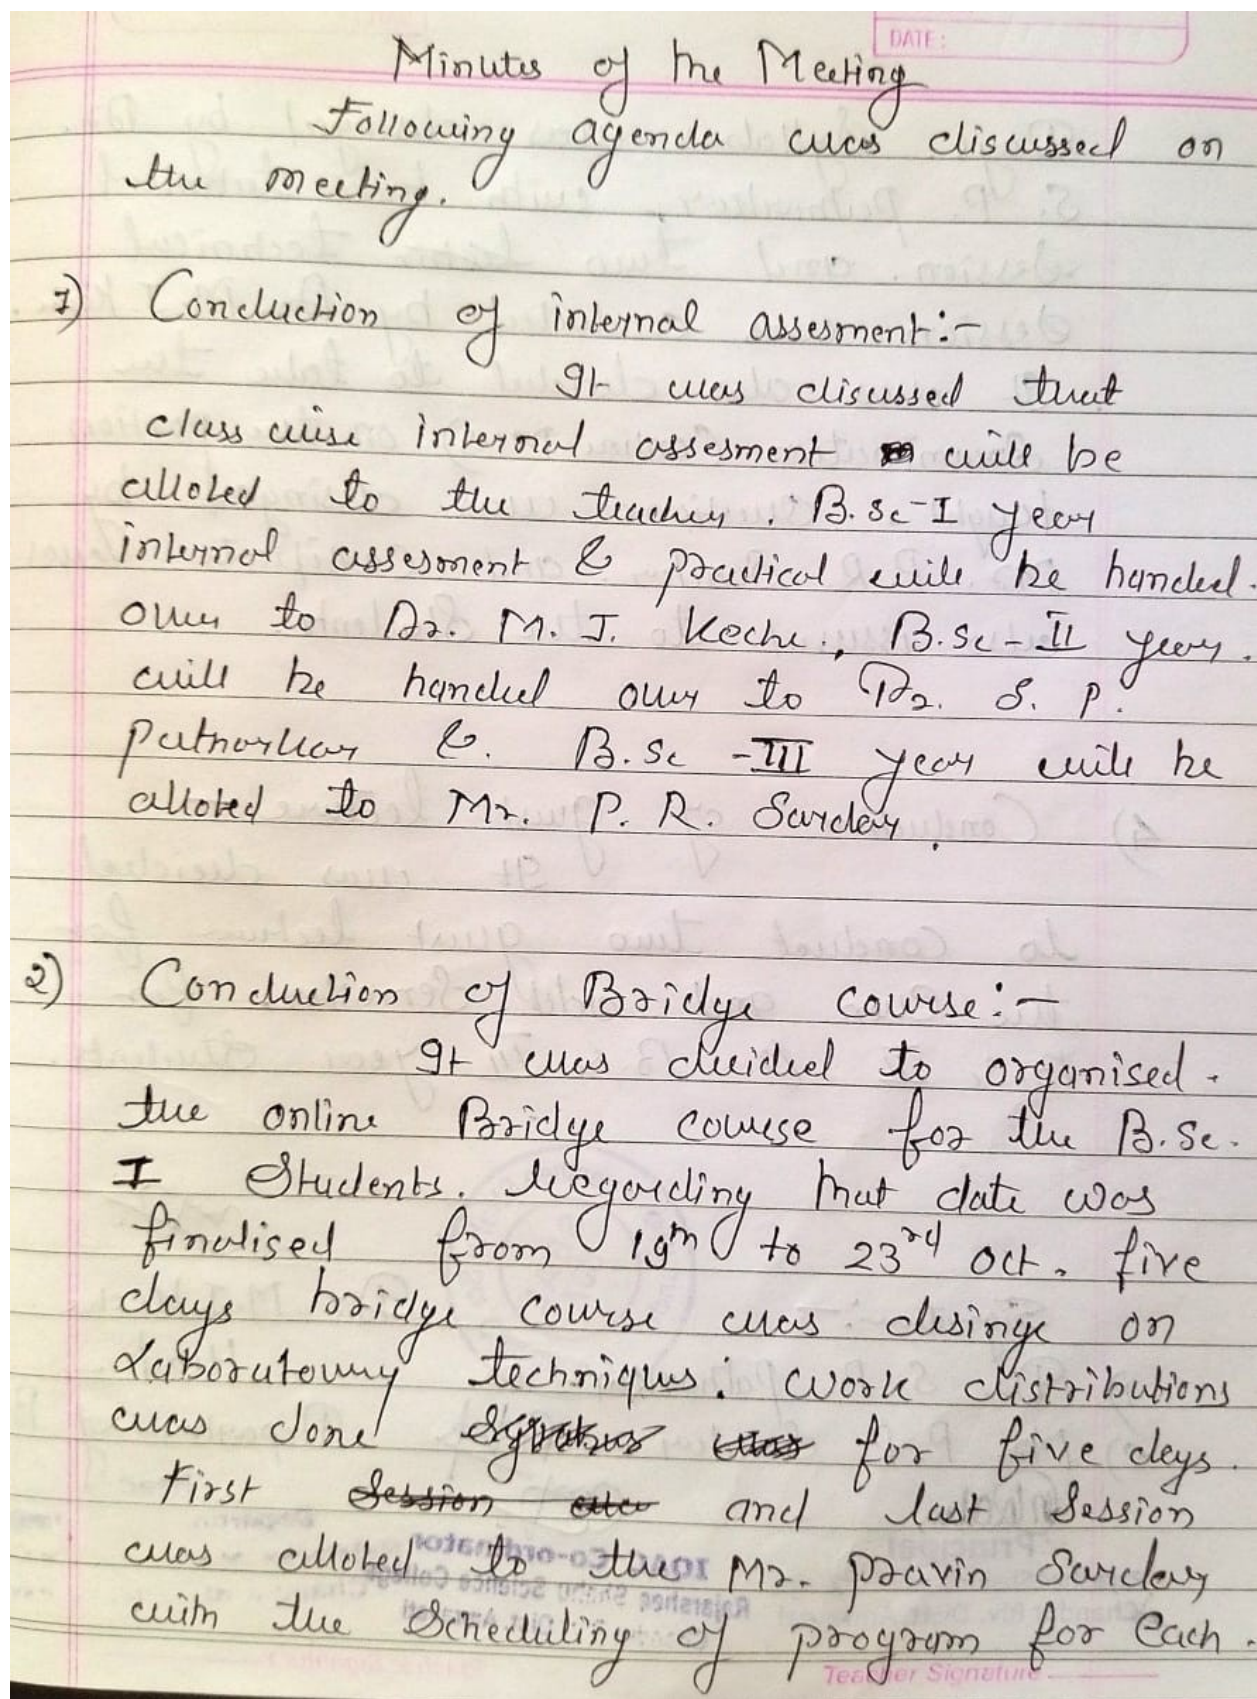 DATE:
Minutes of the Meeting
Following agenda was discussed on
the meeting.
1) Conduction of internal assesment:-
It was discussed that
class wise internal assesment will be
alloted to the teacher. B.Sc-I year
internal assesment & practical will be handed.
over to Dr. M. J. Keche., B.Sc-II year.
will be handed over to Dr. S. P.
Patnorkar &. B.Sc -III year will be
alloted to Mr. P. R. Sarday.
2) Conduction of Bridge course:-
It was decided to organised.
the online Bridge course for the B.Sc.
I Students. Regarding that date was
finalised from 19th to 23rd Oct. five
days bridge course was desinge on
Laboratory techniques. Work distributions
was done for five days.
First and last Session
was alloted to the Mr. Pravin Sarday
with the Scheduling of program for each.
Teacher Signature